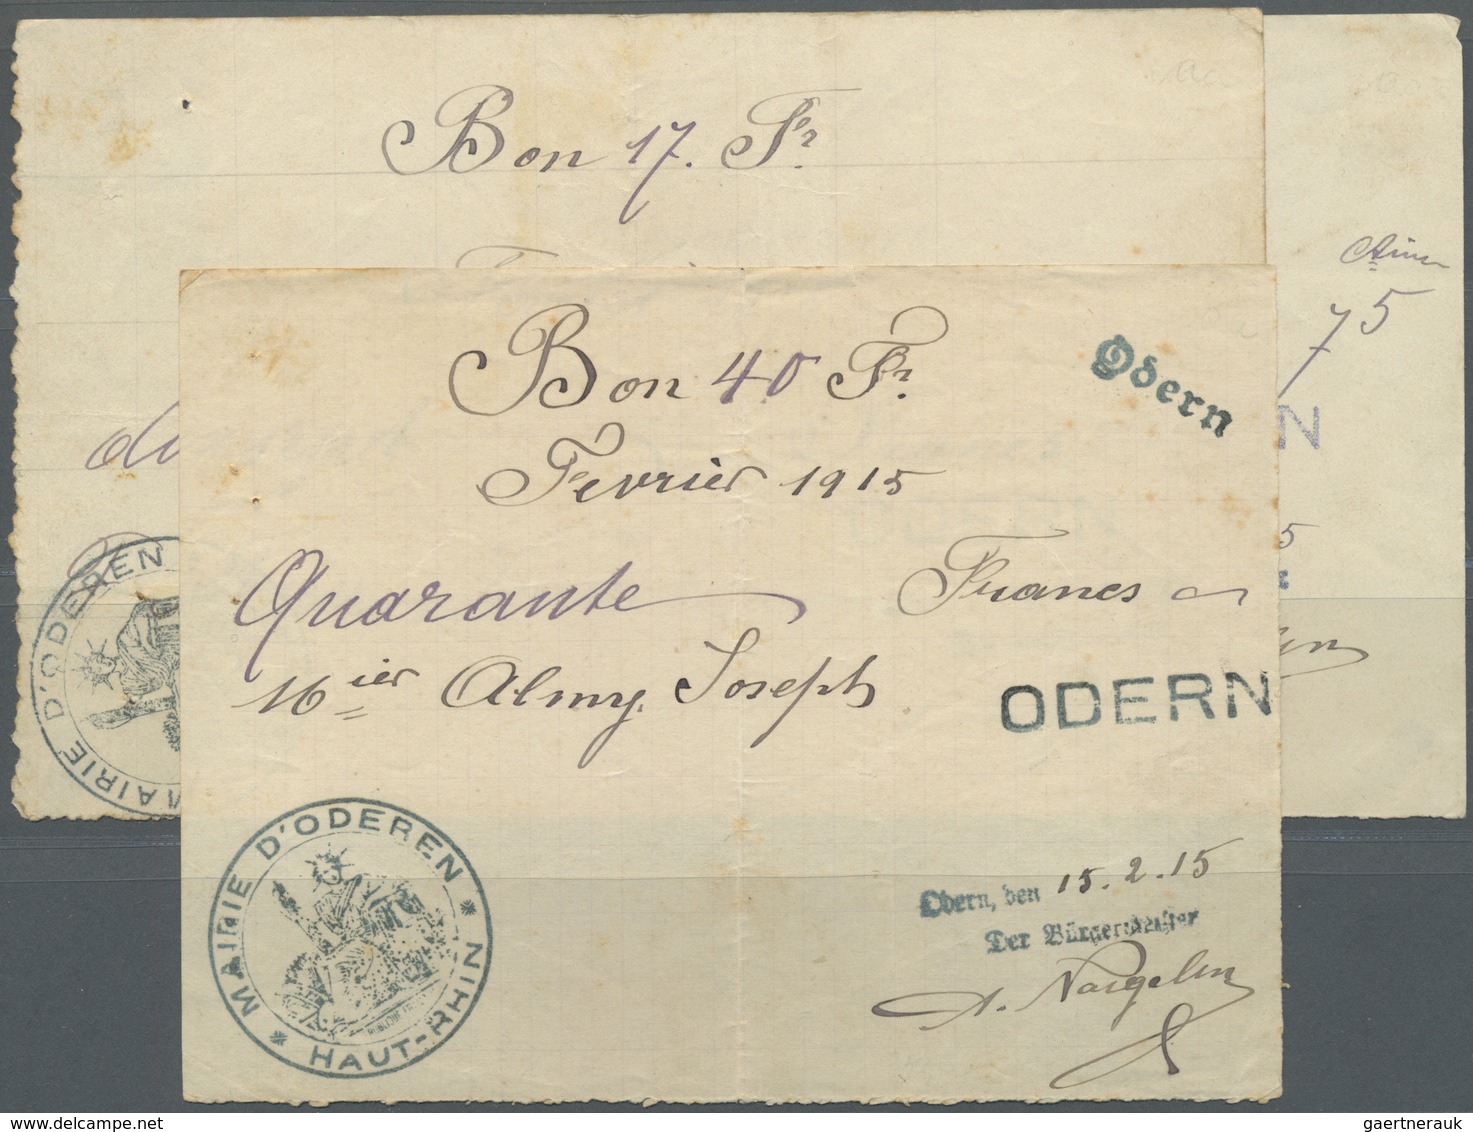 Bon 17. Fr.
75
N
5
MAIRIE D'ODEREN
Bon 40 Fr.
Odern
Fevrier 1915
Quarante Francs
16ier Almy Joseph
ODERN
MAIRIE D'ODEREN * HAUT-RHIN *
Odern, den 15.2.15
Der Bürgermeister
gaertnerauk / delcampe.net